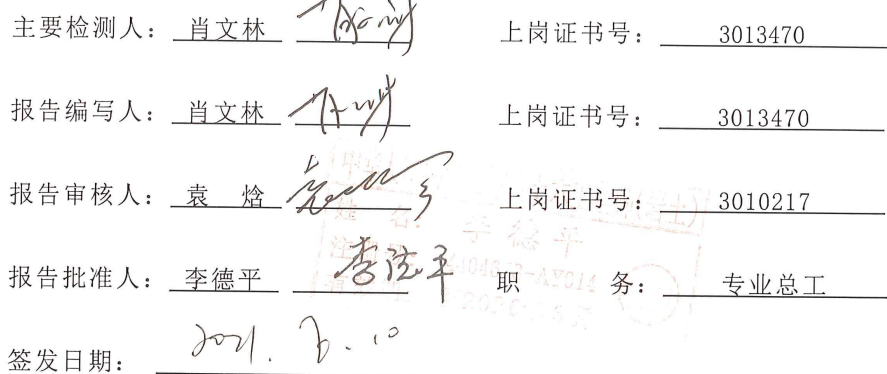 主要检测人： 肖文林 上岗证书号： 3013470
报告编写人： 肖文林 上岗证书号： 3013470
报告审核人： 袁 焓 上岗证书号： 3010217
报告批准人： 李德平 李德平 职 务： 专业总工
签发日期： 2021. 6. 10
李德平